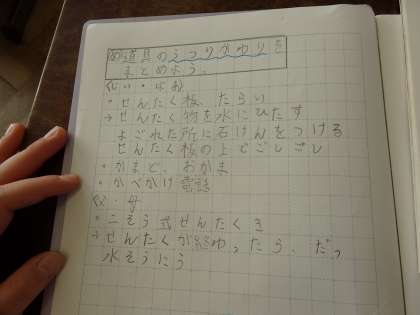 め道具のうつりかわりを
まとめよう。
・せんたく板、たらい
→せんたく物を水にひたす
よごれた所に石けんをつける
せんたく板の上でごしごし
・かまど、おかま
・かべかけ電話
・母
・二そう式せんたくき
→せんたくが終わったら、だっ
水そうにう